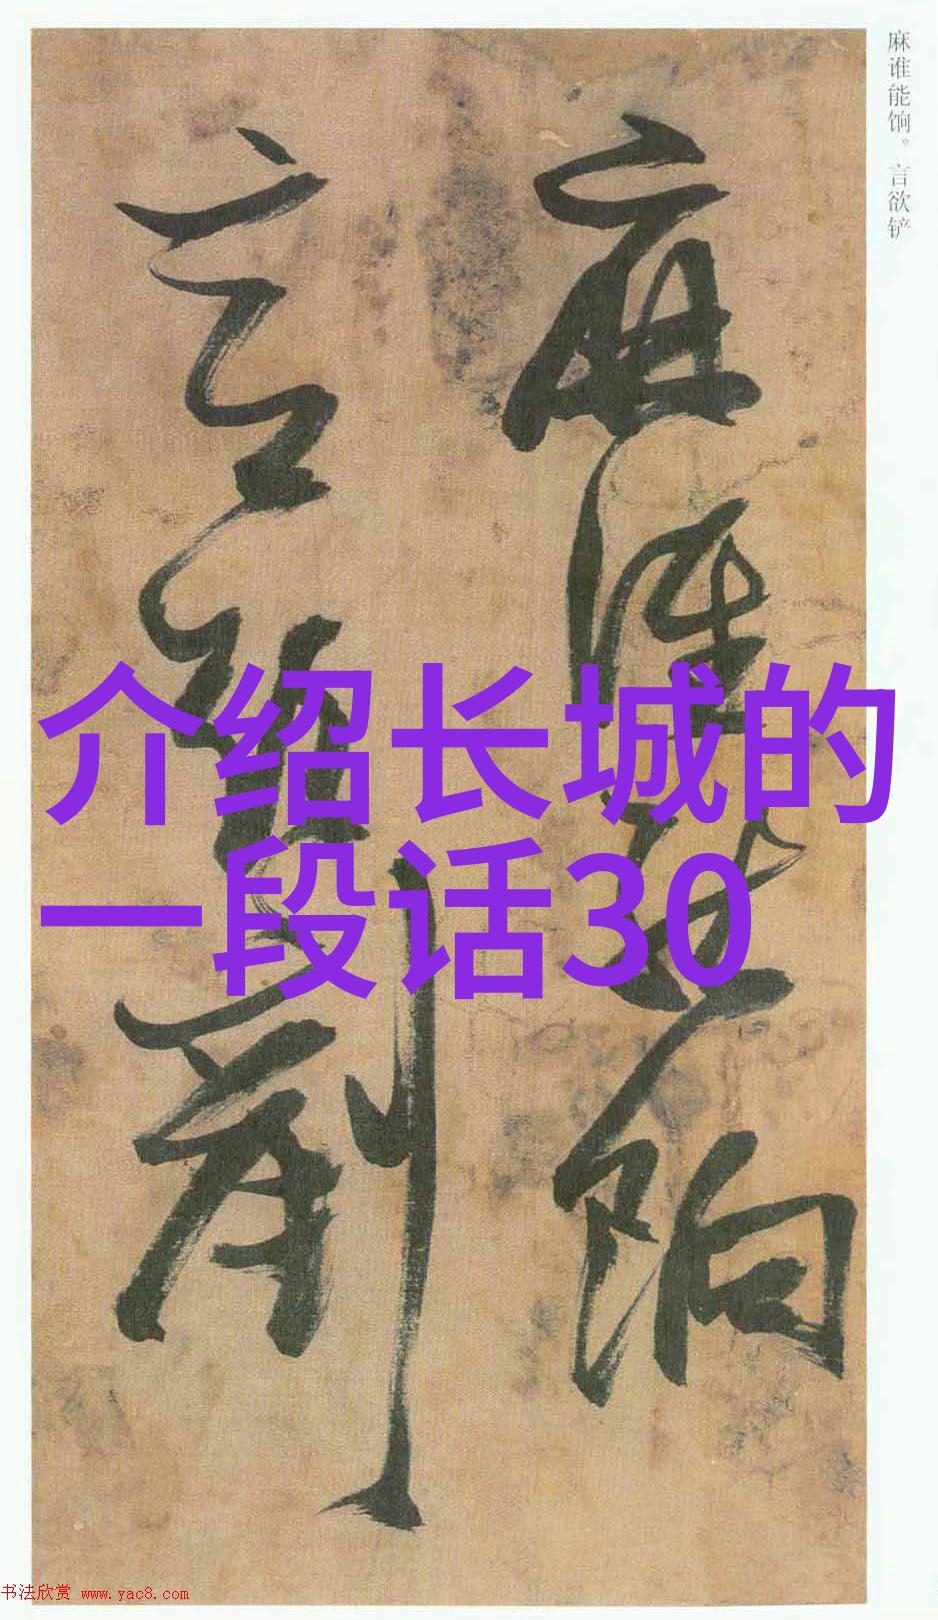 麻谁能饷。言欲铲
麻谁能饷
言欲铲
介绍长城的
一段话30
书法欣赏 www.yac8.com